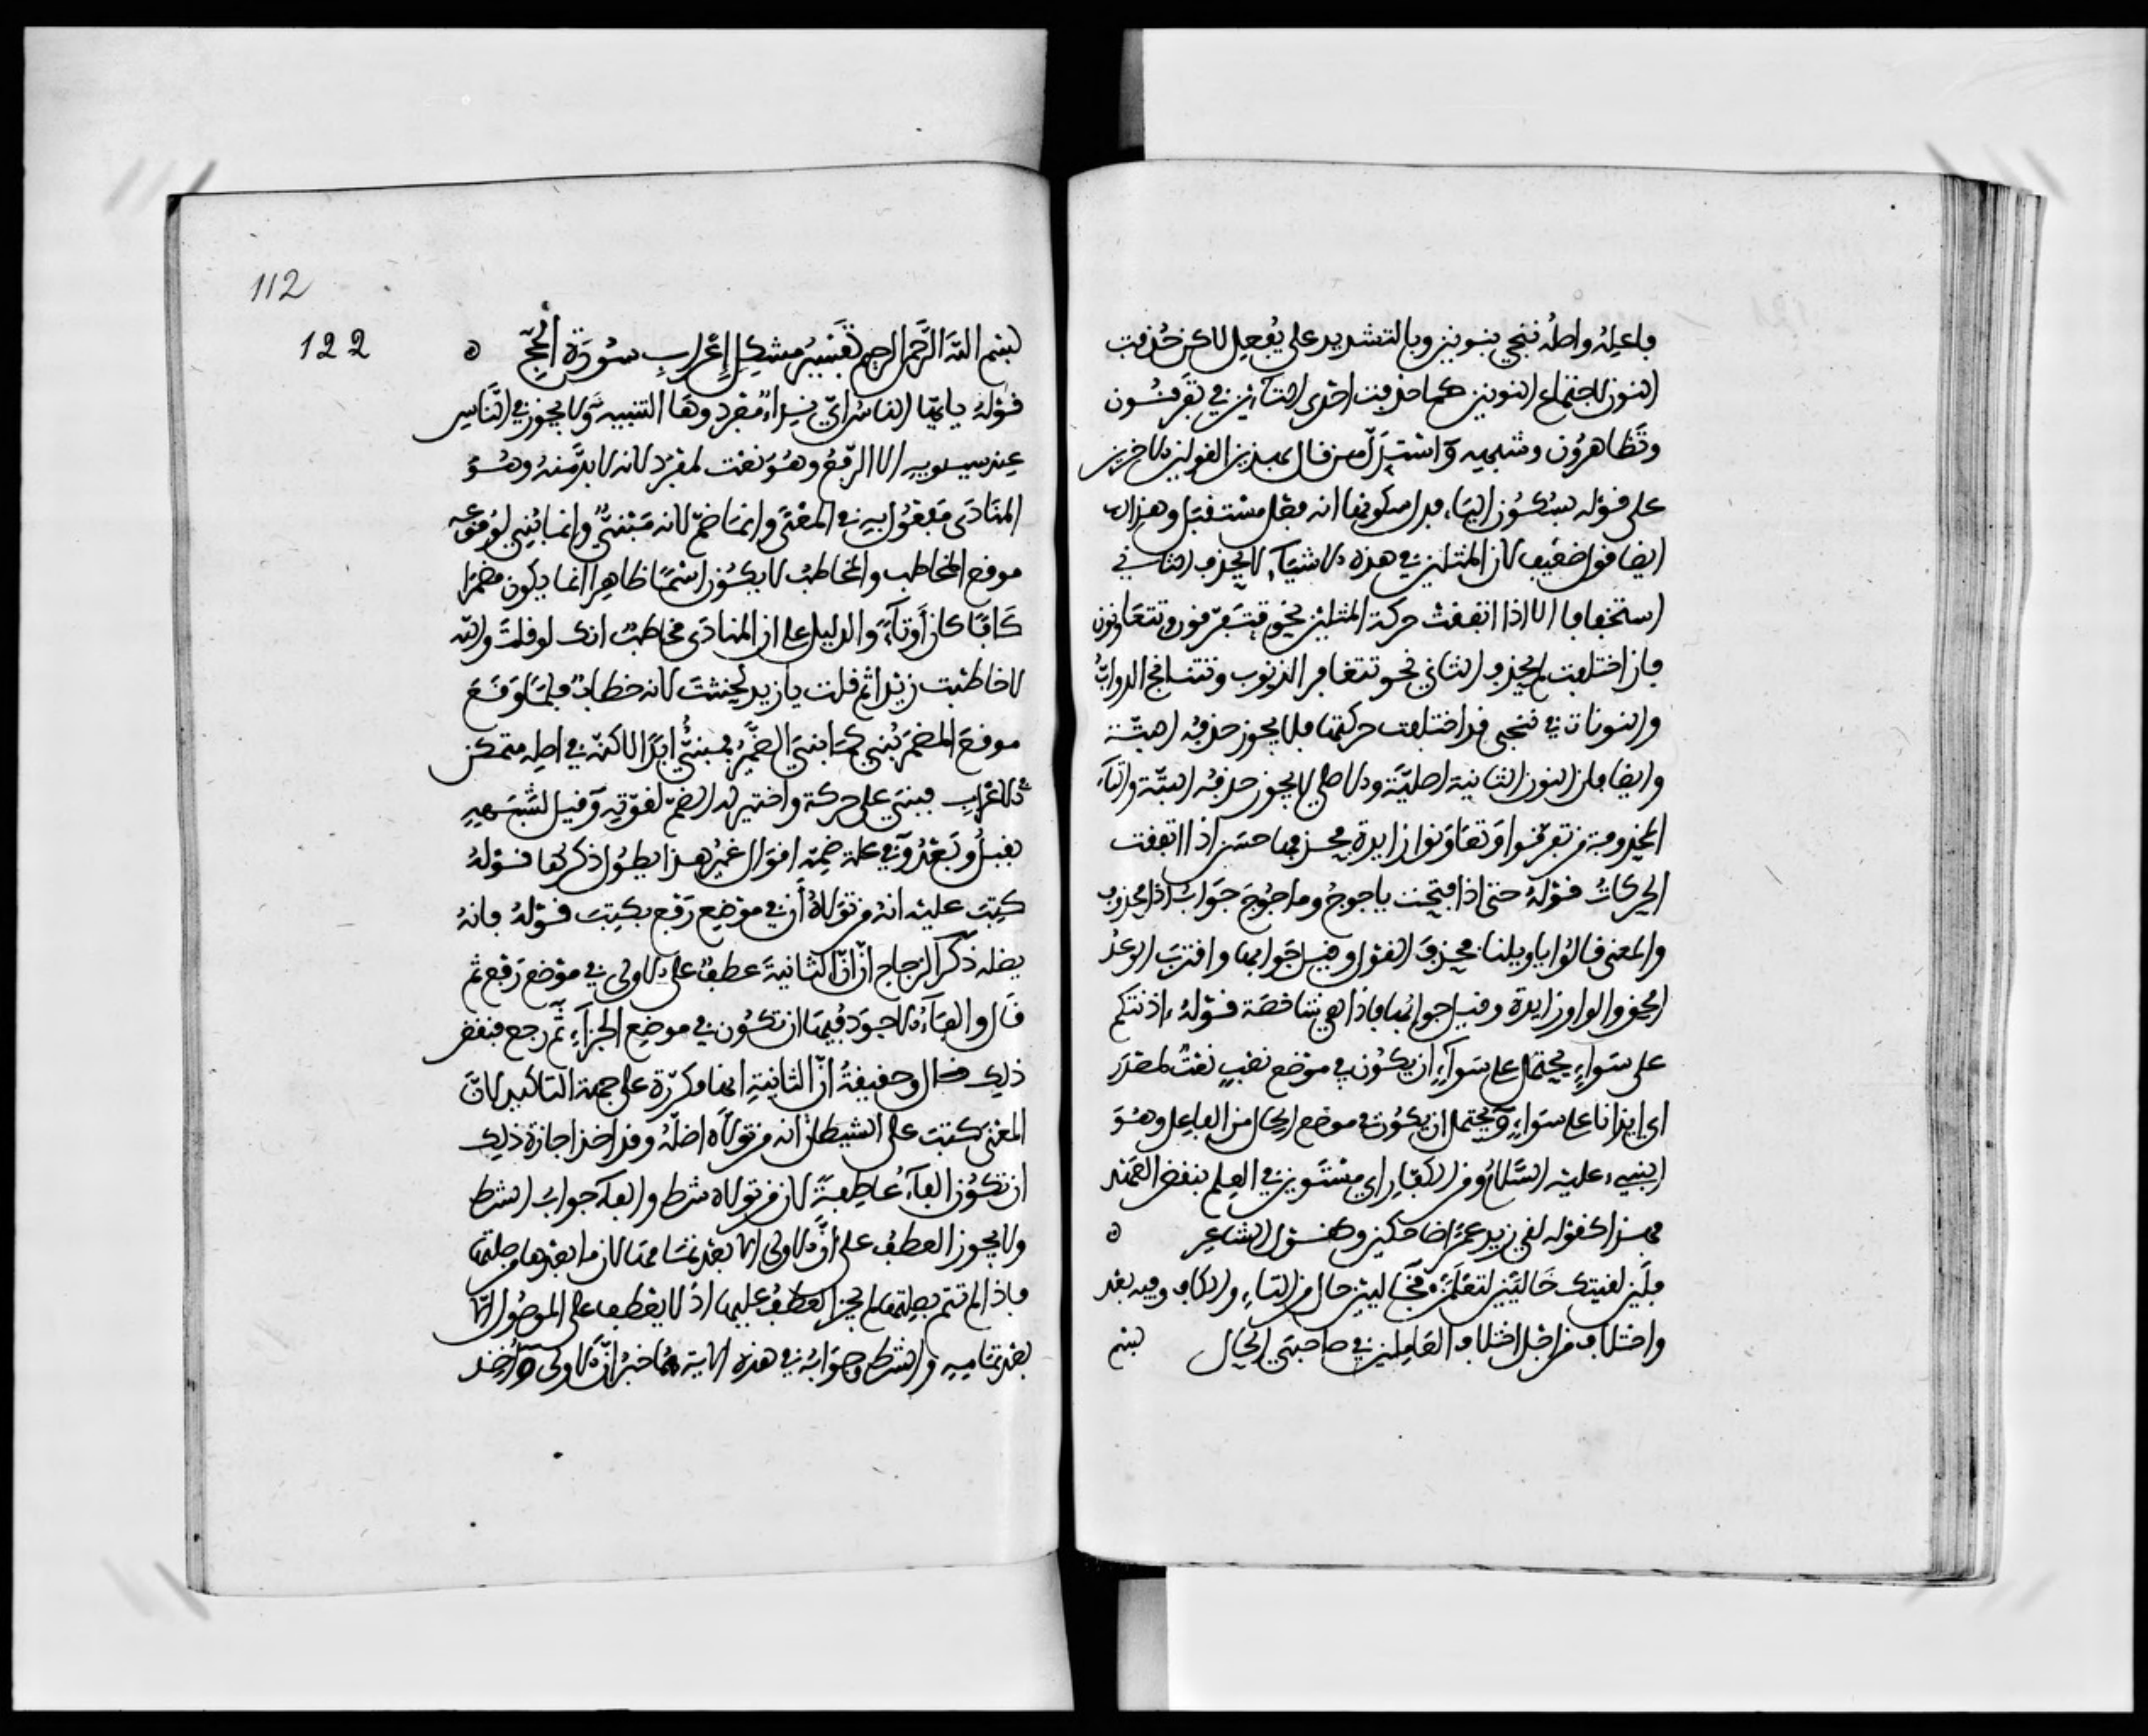 فاعله واصله ننجي بنونين وبالتشديد على نفعل لاكن حذفت
النون لاجتماع النونين كما حذفت احدى التاءين في تفرقون
وتظاهرون وشبهه واستدل من قال بهذين القولين الاخرين
على قوله بسكون الياء فدل سكونها انه فعل مستقبل وهذان
ايضا قول ضعيف لان المثلين في هذه الاشياء لا يحذف الثاني
استخفافا الا اذا اتفقت حركة المثلين نحو تتفرقون وتتعاونون
فان اختلفت لم يحذف الثاني نحو تتغافر الذنوب وتتناتج الدواب
والنونان في ننجي قد اختلفت حركتهما فلا يجوز حذفه البتة
وايضا فان النون الثانية اصلية والاصلي لا يجوز حذفه البتة والتاء
المحذوفة من تفرقوا وتعاونوا زايدة فحذفها حسن اذا اتفقت
الحركات قوله حتى اذا فتحت ياجوج وماجوج جواب اذا محذوف
والمعنى قالوا ياويلنا فحذف القول وقيل جوابها واقترب الوعد
الحق والواو زايدة وقيل جوابها فاذا هي شاخصة قوله ءاذنتكم
على سواء يحتمل على سواء ان يكون في موضع نصب نعت لمصدر
اي ايذانا على سواء ويحتمل ان يكون في موضع الحال من الفاعل وهو
النبيء عليه السلام ومن الكفار اي مستوين في العلم بنقض العهد
فهذا كقوله لقي زيد عمرا ضاحكين وكقول الشاعر ه
فلئن لقيتك خاليين لتعلمن فخاليين حال من التاء والكاف وفيه بعد
واختلاف من اجل اختلاف العاملين في صاحبي الحال بسم
112
122
بسم الله الرحمن الرحيم تفسير مشكل إعراب سورة الحج ه
قوله يايها الناس اي نداء مفرد وها التنبيه ولا يجوز في الناس
عند سيبويه الا الرفع وهو نعت لمفرد لانه لا بد منه وهو
المنادى في المعنى وانما ضم لانه مبني وانما بني لوقوعه
موقع المخاطب والمخاطب لا يكون اسما ظاهرا انما يكون مضمرا
كافا كان أو تاء والدليل على ان المنادى مخاطب انك لو قلت والله
لا خاطبت زيدا ثم قلت يا زيد لحنثت لانه خطاب فلما وقع
موقع المضمر بني كما بني الضمير فبني ابدا لاكنه في اصله متمكن
في الاعراب فبني على حركة واختير له الضم لقوته وقيل لشبهه
بقبل وبعد وفي علة ضمه اقوال غير هذا يطول ذكرها قوله
كتب عليه انه من تولاه أن في موضع رفع بكتب قوله فانه
يضله ذكر الزجاج ان ان الثانية عطف على الاولى في موضع رفع ثم
قال والفاء الاجود فيها ان تكون في موضع الجزاء ثم رجع فنقض
ذلك فقال وحقيقة ان الثانية انها مكررة على جهة التاكيد لان
المعنى كتب على الشيطان انه من تولاه اضله وقد اخذ اجازة ذلك
ان تكون الفاء عاطفة لان من تولاه شرط والفاء جواب الشرط
ولا يجوز العطف على أن الاولى الا بعد تمامها لان ما بعدها من صلتها
فاذا لم تتم بصلتها لم يجز العطف عليها اذ لا يعطف على الموصول الا
بعد تمامه والشرط وجوابه في هذه الاية هما خبر ان الاولى واخذ